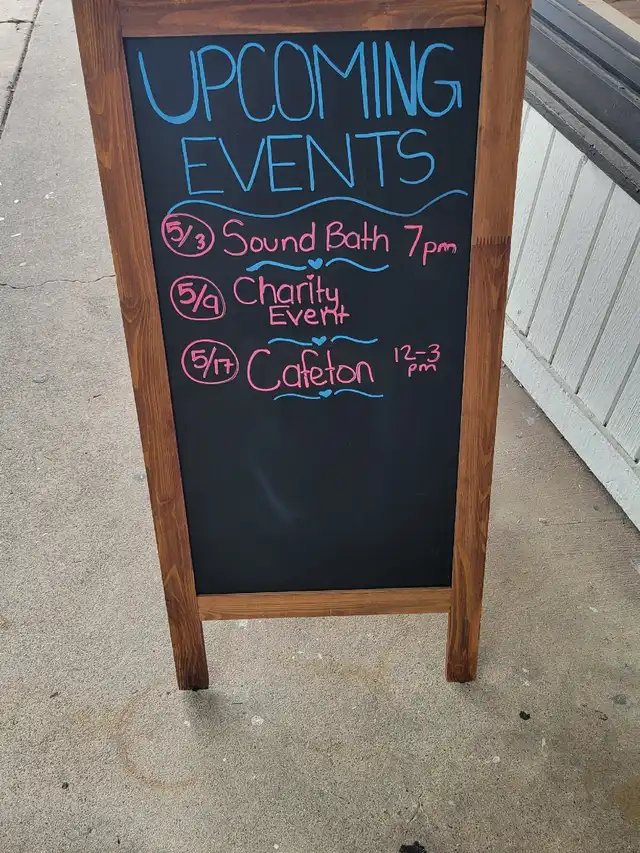 UPCOMING
EVENTS
5/3 Sound Bath 7pm
5/9 Charity
Event
5/17 Cafeton 12-3
pm